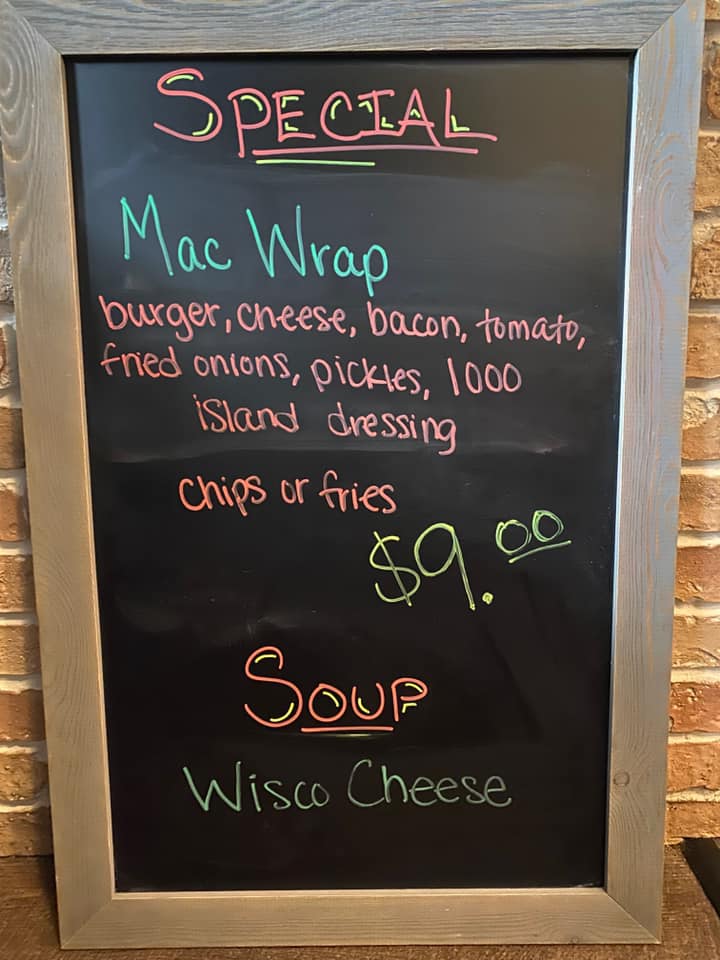 SPECIAL
Mac Wrap
burger, cheese, bacon, tomato,
fried onions, pickles, 1000
island dressing
chips or fries
$9.00
SOUP
Wisco Cheese